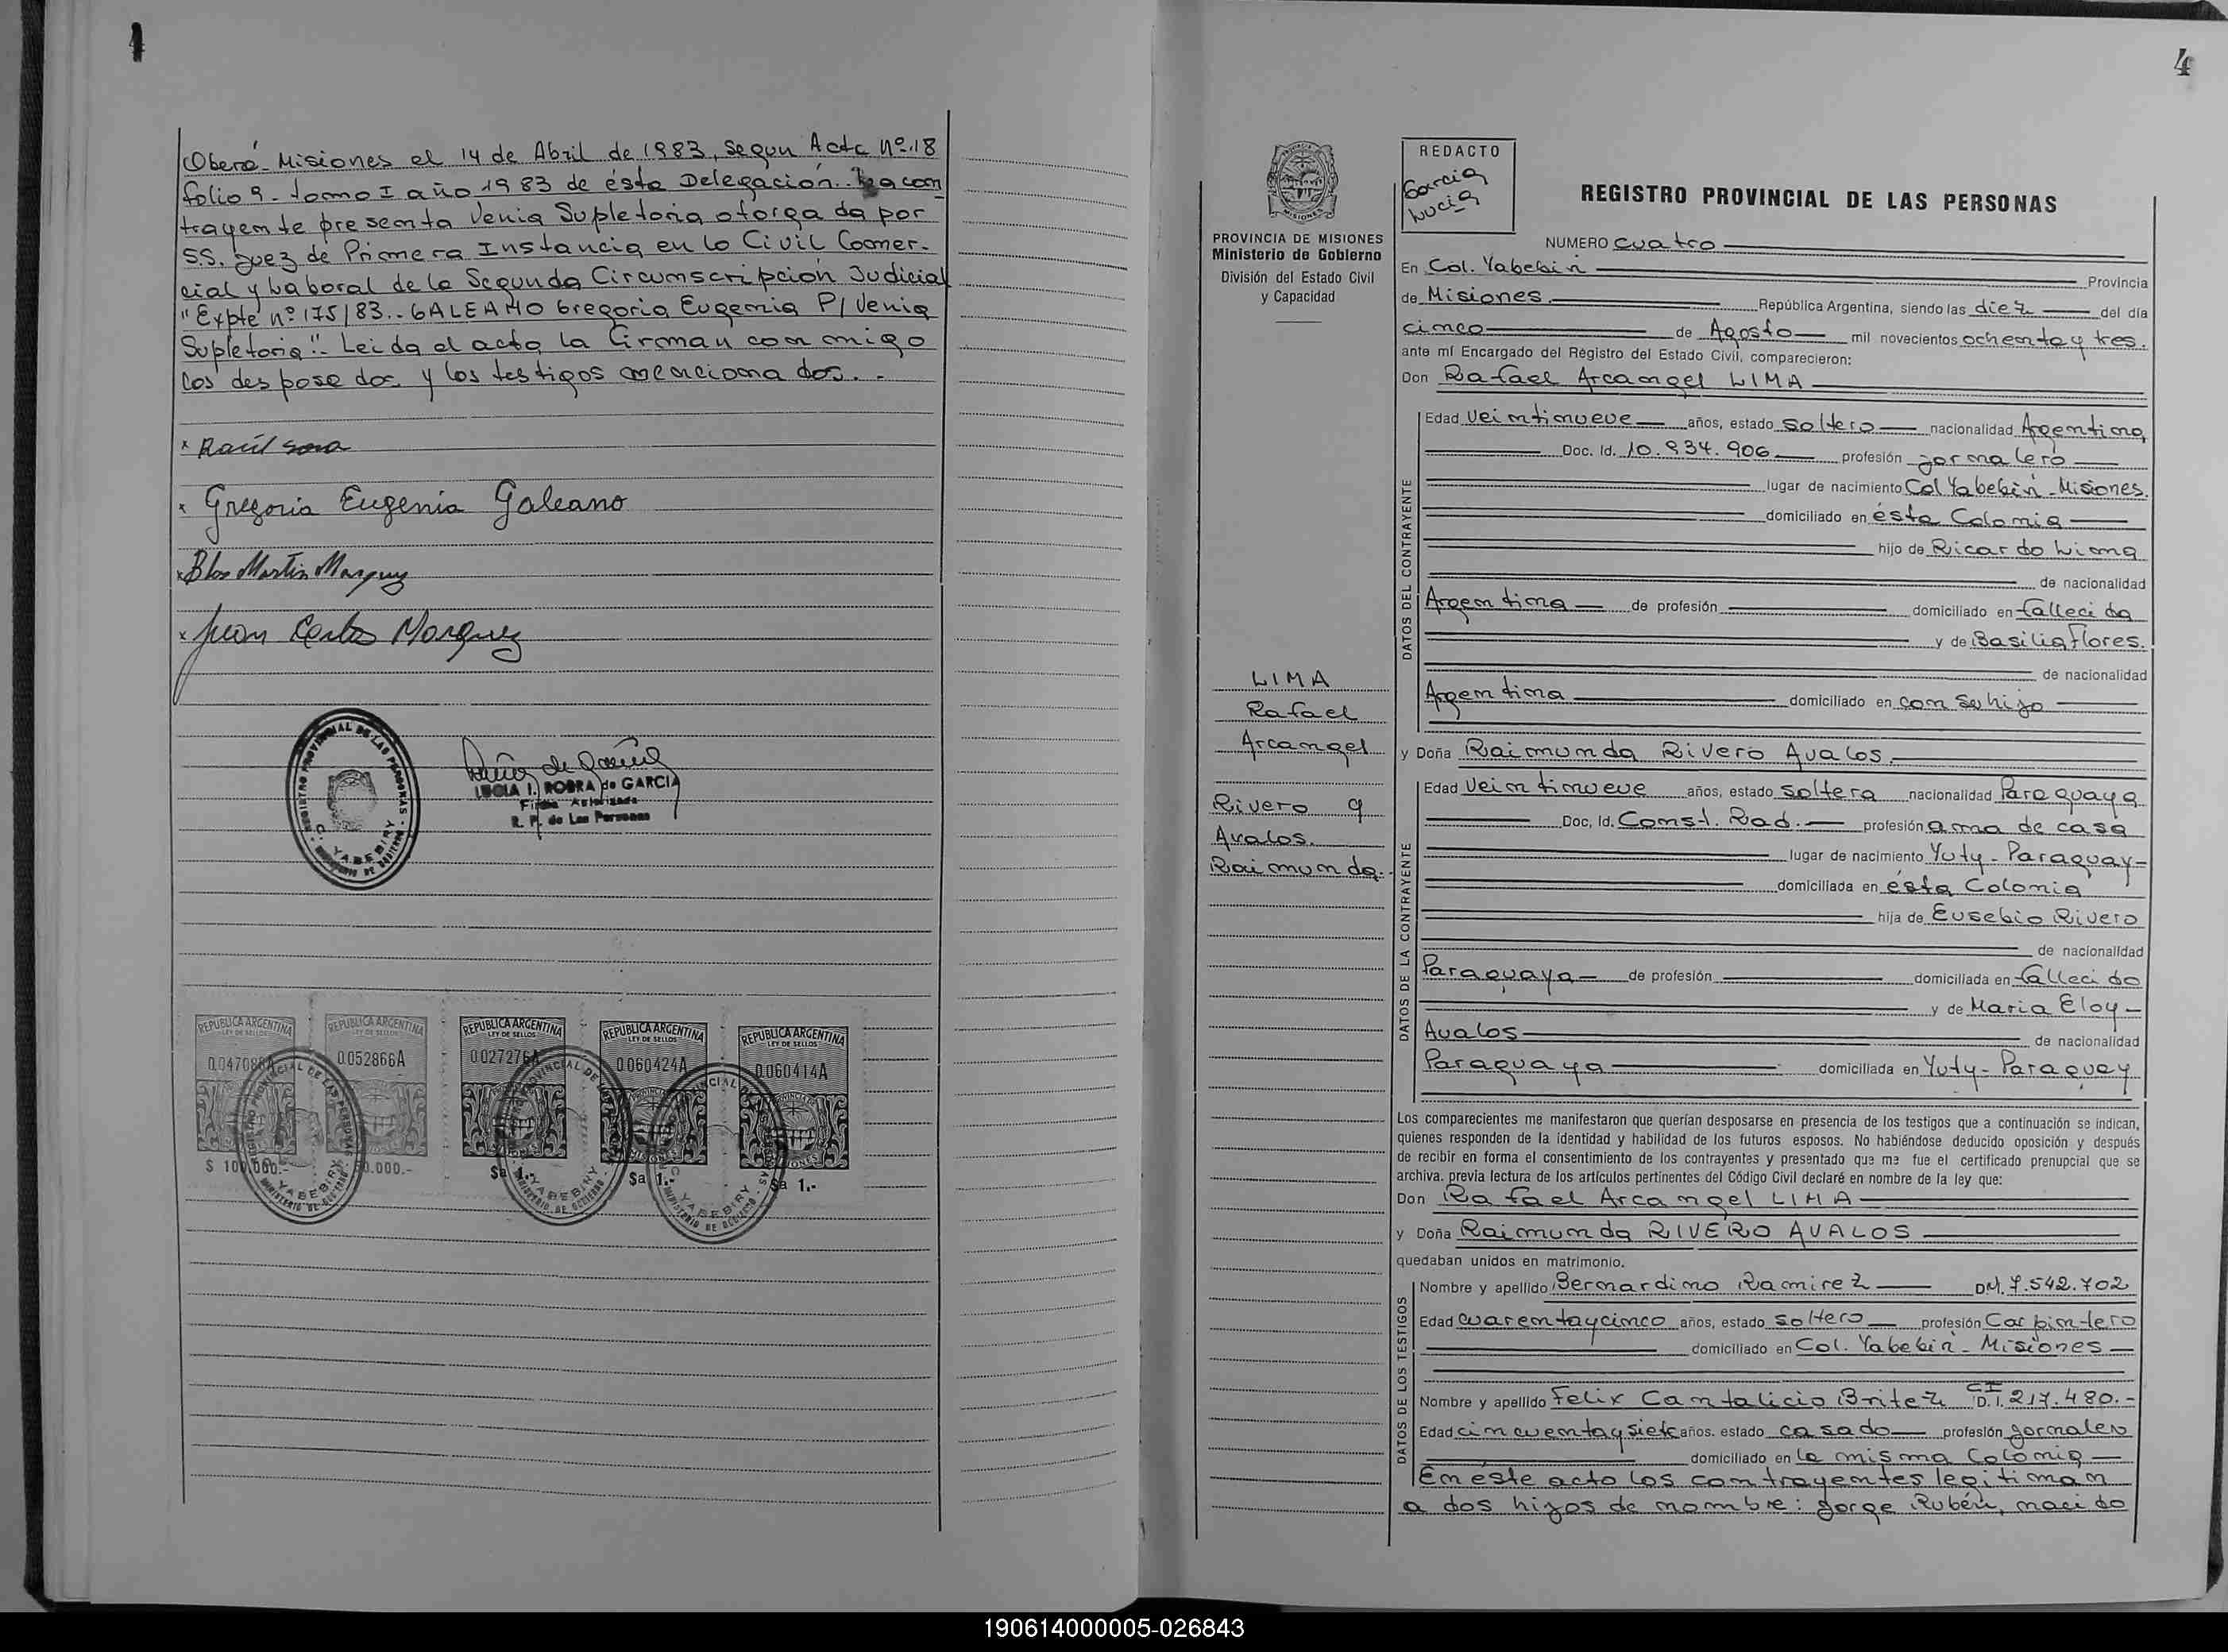 4
Oberá - Misiones el 14 de Abril de 1983, segun Acta nº 18
folio 9 - tomo I año 1983 de ésta Delegación.. La con
trayente presenta Venia Supletoria otorga da por
S.S. Juez de Primera Instancia en lo Civil Comer-
cial y Laboral de la Segunda Circunscripción Judicial
"Expte nº 175/83.. GALEANO Gregoria Eugenia P/ Venia
Supletoria". Leida el acta la firman con migo
los desposados y los testigos mencionados. -
x Raúl
x Gregoria Eugenia Galeano
x Blas Martin Marquez
x Juan Carlos Marquez
REGISTRO PROVINCIAL DE LAS PERSONAS
C. YABEBIRY
MINISTERIO DE GOBIERNO
LUCIA I. ROBRA de GARCIA
Firma Autorizada
R. P. de Las Personas
REPUBLICA ARGENTINA REPUBLICA ARGENTINA REPUBLICA ARGENTINA REPUBLICA ARGENTINA REPUBLICA ARGENTINA
LEY DE SELLOS LEY DE SELLOS LEY DE SELLOS LEY DE SELLOS LEY DE SELLOS
0052866A 0027276A 0060424A 0060414A
$ 100.000.- $a 1.- $a 1.- $a 1.-
4
PROVINCIA DE MISIONES
Ministerio de Gobierno
División del Estado Civil
y Capacidad
REDACTO
Garcia
Lucia
REGISTRO PROVINCIAL DE LAS PERSONAS
NUMERO cuatro
En Col. Yabebirí Provincia
de Misiones. República Argentina, siendo las diez del día
cinco de Agosto mil novecientos ochenta y tres.
ante mí Encargado del Registro del Estado Civil, comparecieron:
Don Rafael Arcangel LIMA
DATOS DEL CONTRAYENTE
Edad Veintinueve años, estado soltero nacionalidad Argentina
Doc. Id. 10.934.906 profesión jornalero
lugar de nacimiento Col Yabebirí - Misiones.
domiciliado en ésta Colonia
hijo de Ricardo Lima
de nacionalidad
Argentina de profesión domiciliado en fallecido
y de Basilia Flores.
de nacionalidad
Argentina domiciliado en con su hijo
LIMA
Rafael
Arcangel
Rivero
Avalos.
Raimunda.
y Doña Raimunda Rivero Avalos.
DATOS DE LA CONTRAYENTE
Edad Veintinueve años, estado soltera nacionalidad Paraguaya
Doc, Id. Const. Rad. profesión ama de casa
lugar de nacimiento Yuty - Paraguay -
domiciliada en ésta Colonia
hija de Eusebio Rivero
de nacionalidad
Paraguaya de profesión domiciliada en fallecido
y de Maria Eloy -
Avalos de nacionalidad
Paraguaya domiciliada en Yuty - Paraguay
Los comparecientes me manifestaron que querían desposarse en presencia de los testigos que a continuación se indican,
quienes responden de la identidad y habilidad de los futuros esposos. No habiéndose deducido oposición y después
de recibir en forma el consentimiento de los contrayentes y presentado que me fue el certificado prenupcial que se
archiva. previa lectura de los artículos pertinentes del Código Civil declaré en nombre de la ley que:
Don Rafael Arcangel LIMA
y Doña Raimunda RIVERO AVALOS
quedaban unidos en matrimonio.
DATOS DE LOS TESTIGOS
Nombre y apellido Bernardino Ramirez DM. 7.542.702
Edad cuarentaycinco años, estado soltero profesión Carpintero
domiciliado en Col. Yabebirí - Misiones
Nombre y apellido Felix Cantalicio Britez CI D.I. 217.480.-
Edad cincuentaysiete años. estado casado profesión jornalero
domiciliado en la misma Colonia
En éste acto los contrayentes legitiman
a dos hijos de nombre: Jorge Rubén, nacido
190614000005-026843